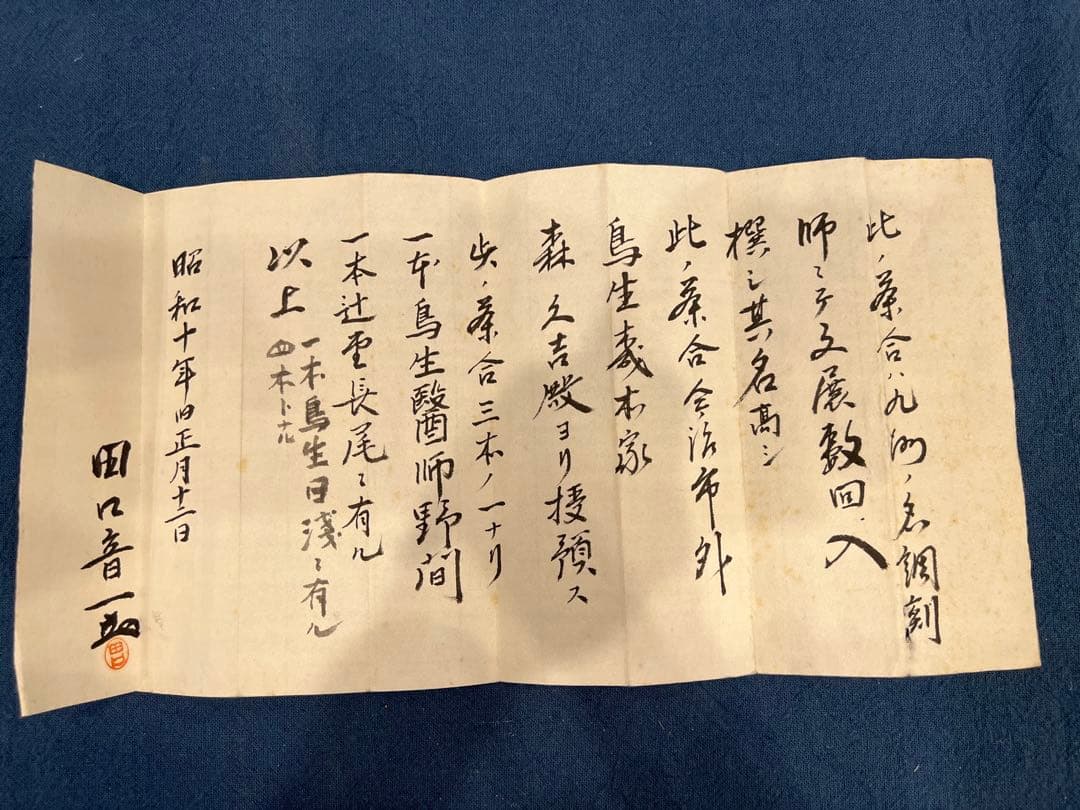 此ノ茶合ハ九洲ノ名調刻
師ニテ文展数回入
撰シ其名高シ
此ノ茶合今治市外
鳥生歳本家
森久吉殿ヨリ授預ス
此ノ茶合三本ノ一ナリ
一本鳥生醫師野間
一本辻堂長尾ニ有ル
以上
一本鳥生日淺ニ有ル
四本トナル
昭和十年旧正月十二日
田口音一
田口